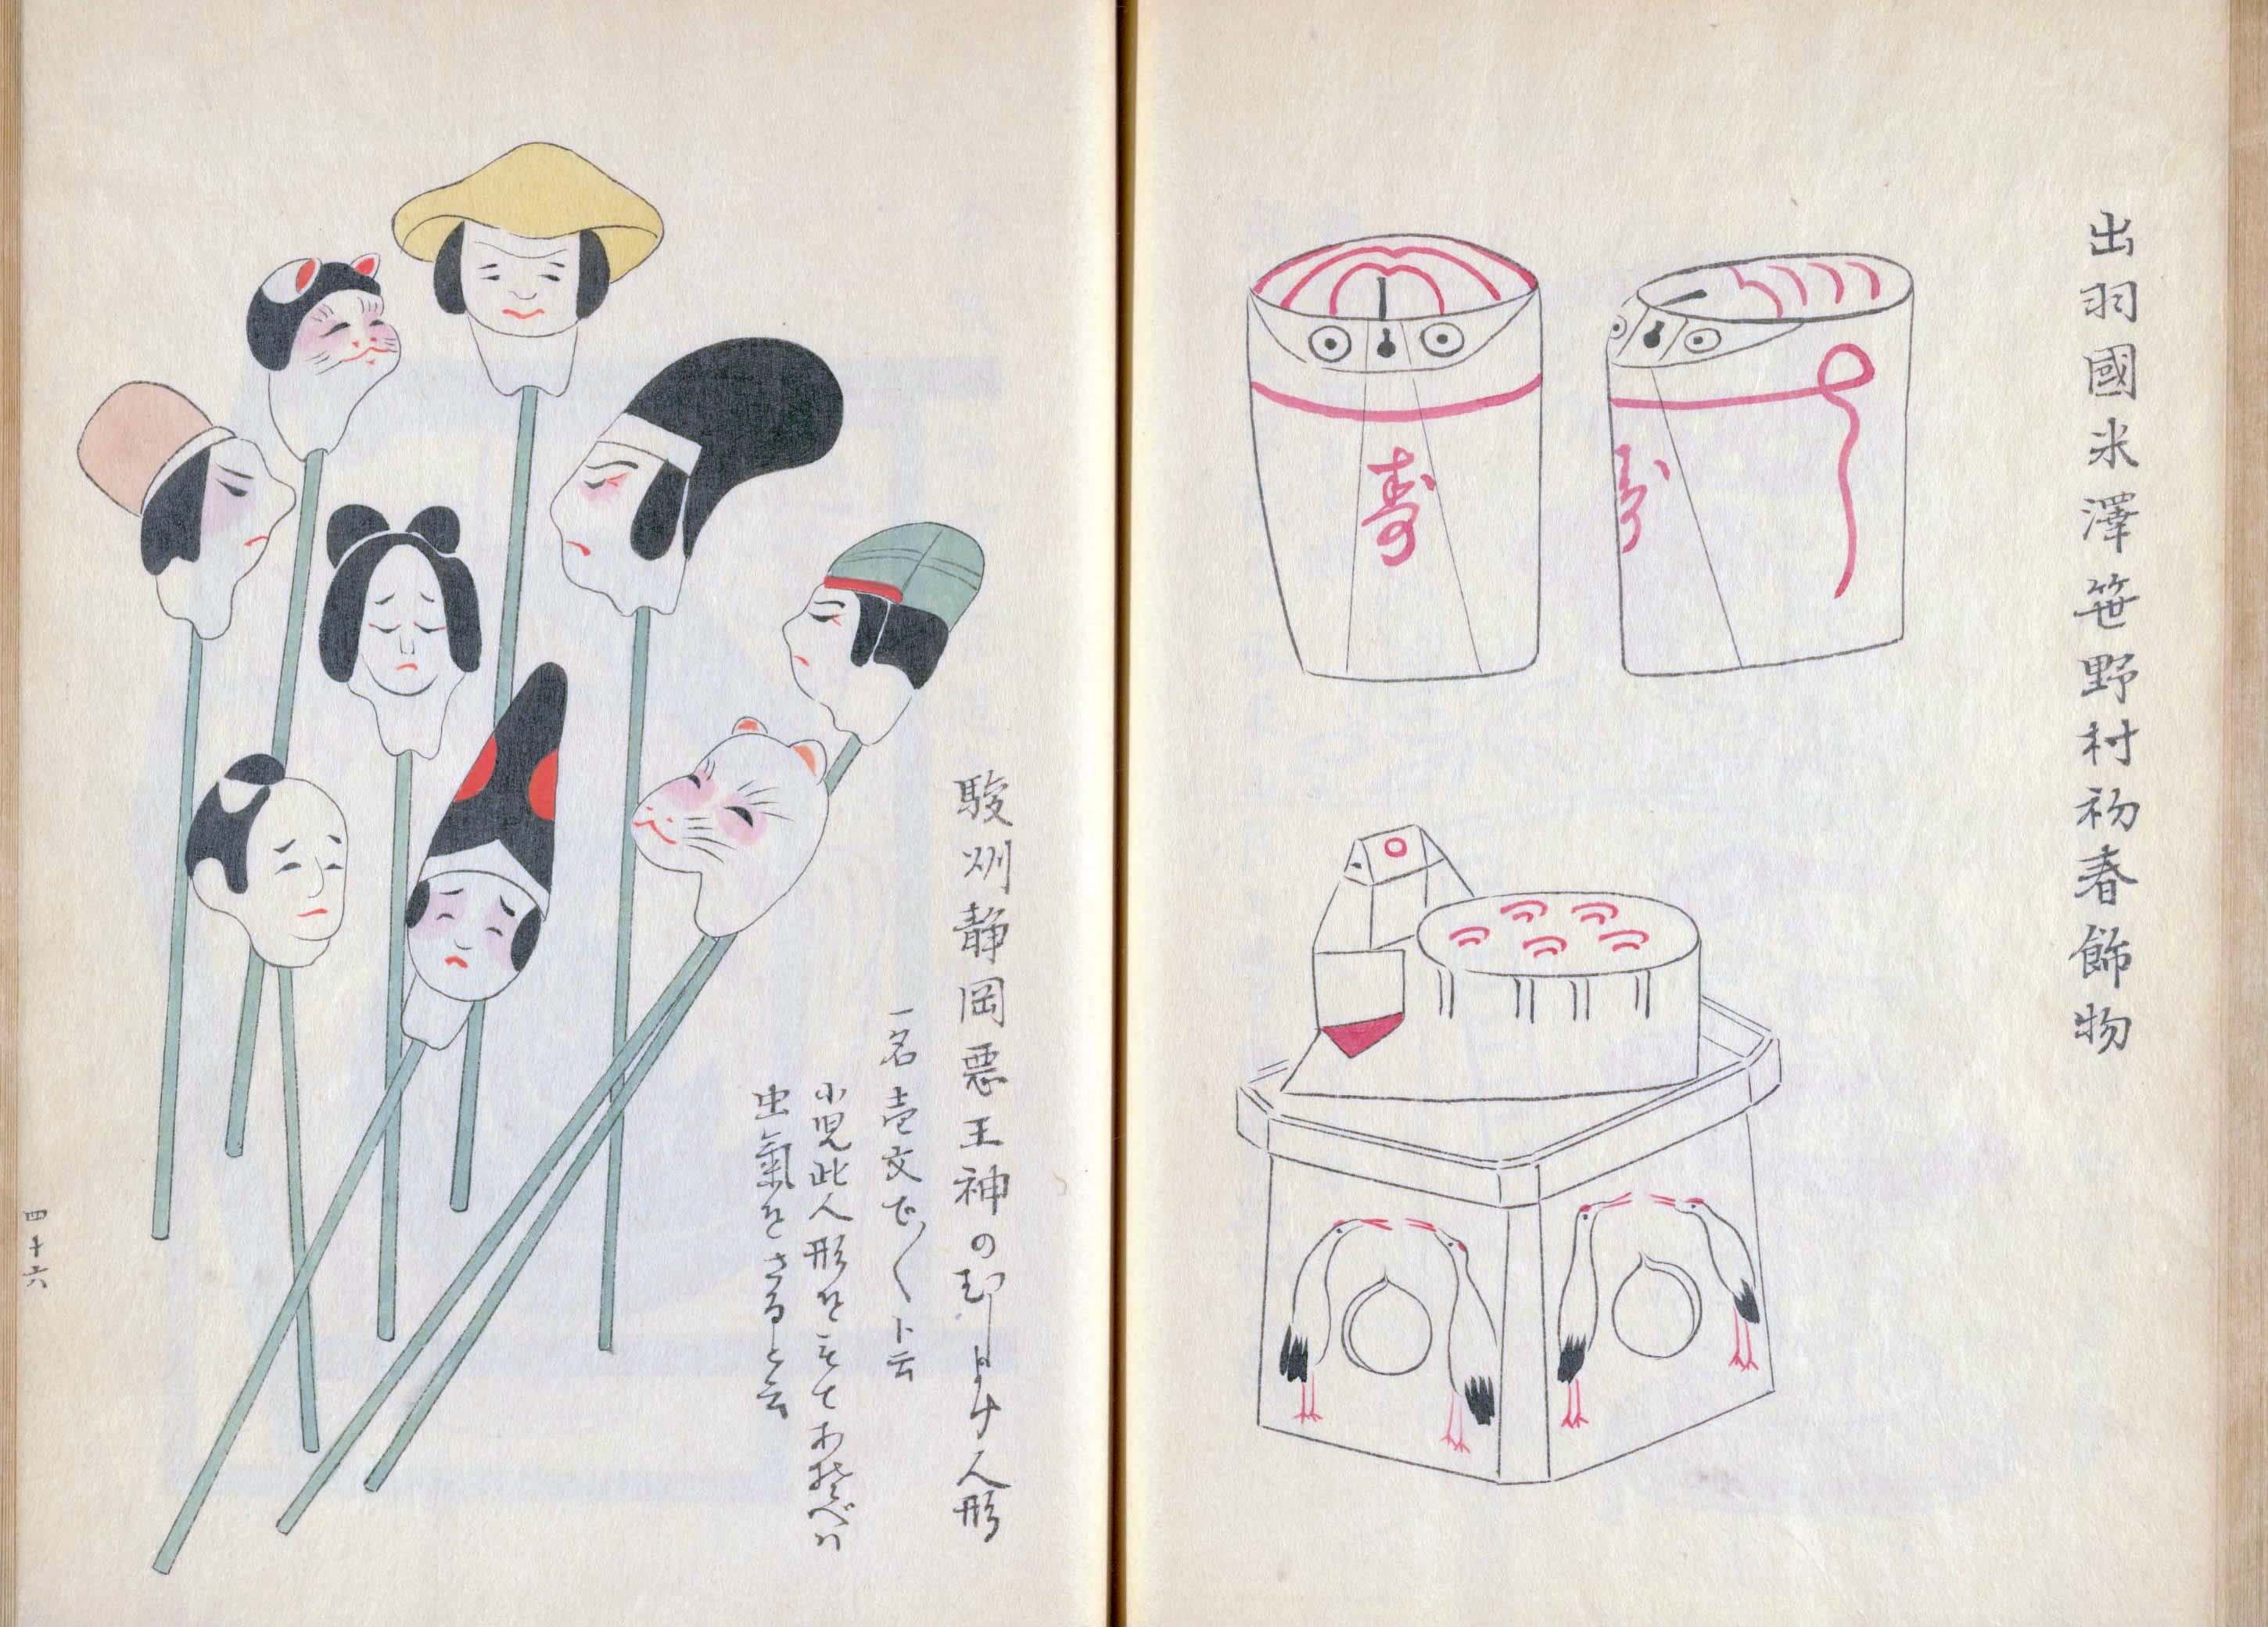 出羽國米澤笹野村初春飾物
寿
寿
駿州静岡悪王神のむしよけ人形
一名壱文でくト云
小児此人形をもてあそべハ
虫氣をさると云
四十六